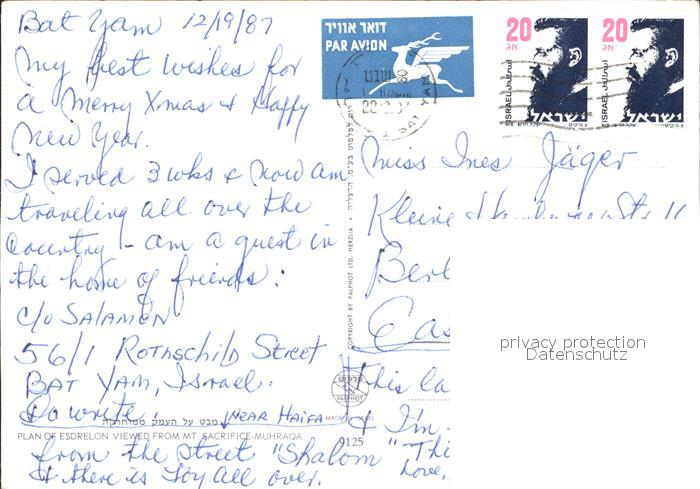 Bat Yam 12/19/87
My best wishes for
a Merry Xmas & Happy
New Year.
I served 3 wks & now am
traveling all over the
Country - am a guest in
the home of friends:
c/o SALAMON
56/1 ROTHSCHILD STREET
BAT YAM, ISRAEL.
Do write. NEAR HAIFA
מבט על העמק ממוחרקה
PLAN OF ESDRELON VIEWED FROM MT. SACRIFICE-MUHRAQA
from the street "Shalom"
& there is Joy all over.
דואר אוויר
PAR AVION
BAT YAM
20
אג
ISRAEL
ישראל
20
אג
ISRAEL
ישראל
COPYRIGHT BY PALPHOT LTD. HERZLIA
פלפוט
PALPHOT
MADE IN
9125
Miss Ines Jäger
Kleine
Berl
Eas
This la
& I'm
"Thi
Love,
privacy protection
Datenschutz